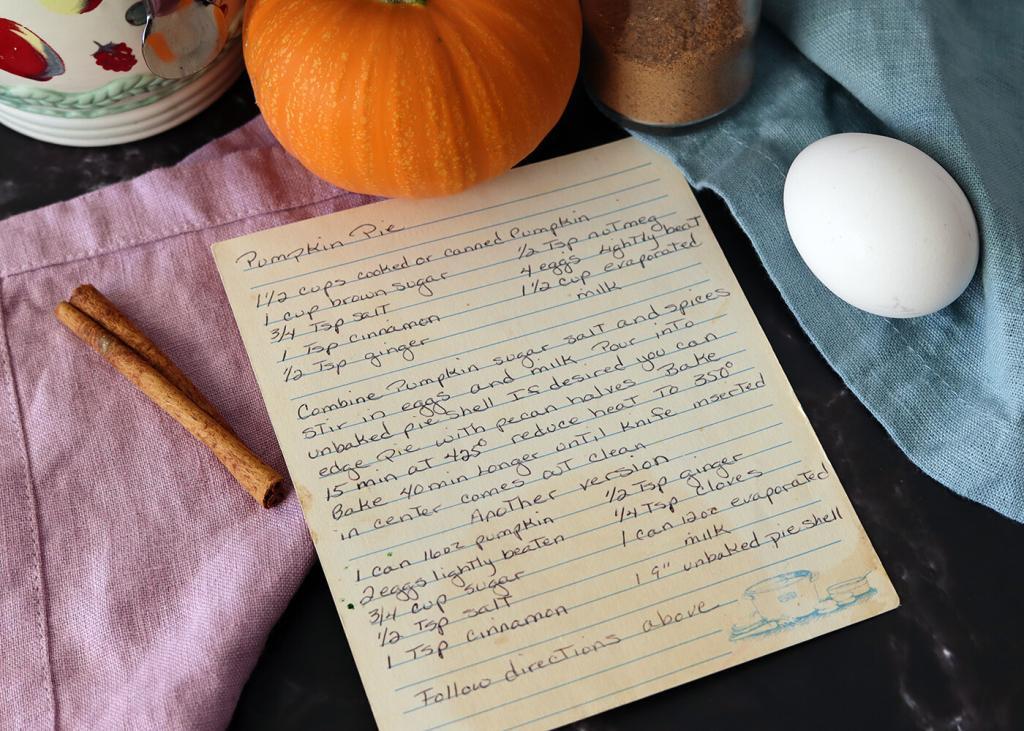 Pumpkin Pie
1 1/2 cups cooked or canned Pumpkin
1 cup brown sugar
3/4 Tsp salt
1 Tsp cinnamon
1/2 Tsp ginger
1/2 Tsp nutmeg
4 eggs lightly beat
1 1/2 cup evaporated
milk
Combine Pumpkin sugar salt and spices
stir in eggs and milk Pour into
unbaked pie shell If desired you can
edge pie with pecan halves Bake
15 min at 425° reduce heat to 350°
Bake 40 min longer until knife inserted
in center comes out clean
Another version
1 can 16oz pumpkin
2 eggs lightly beaten
3/4 cup sugar
1/2 Tsp salt
1 Tsp cinnamon
1/2 Tsp ginger
1/4 Tsp cloves
1 can 12oz evaporated
milk
1 9" unbaked pie shell
Follow directions above